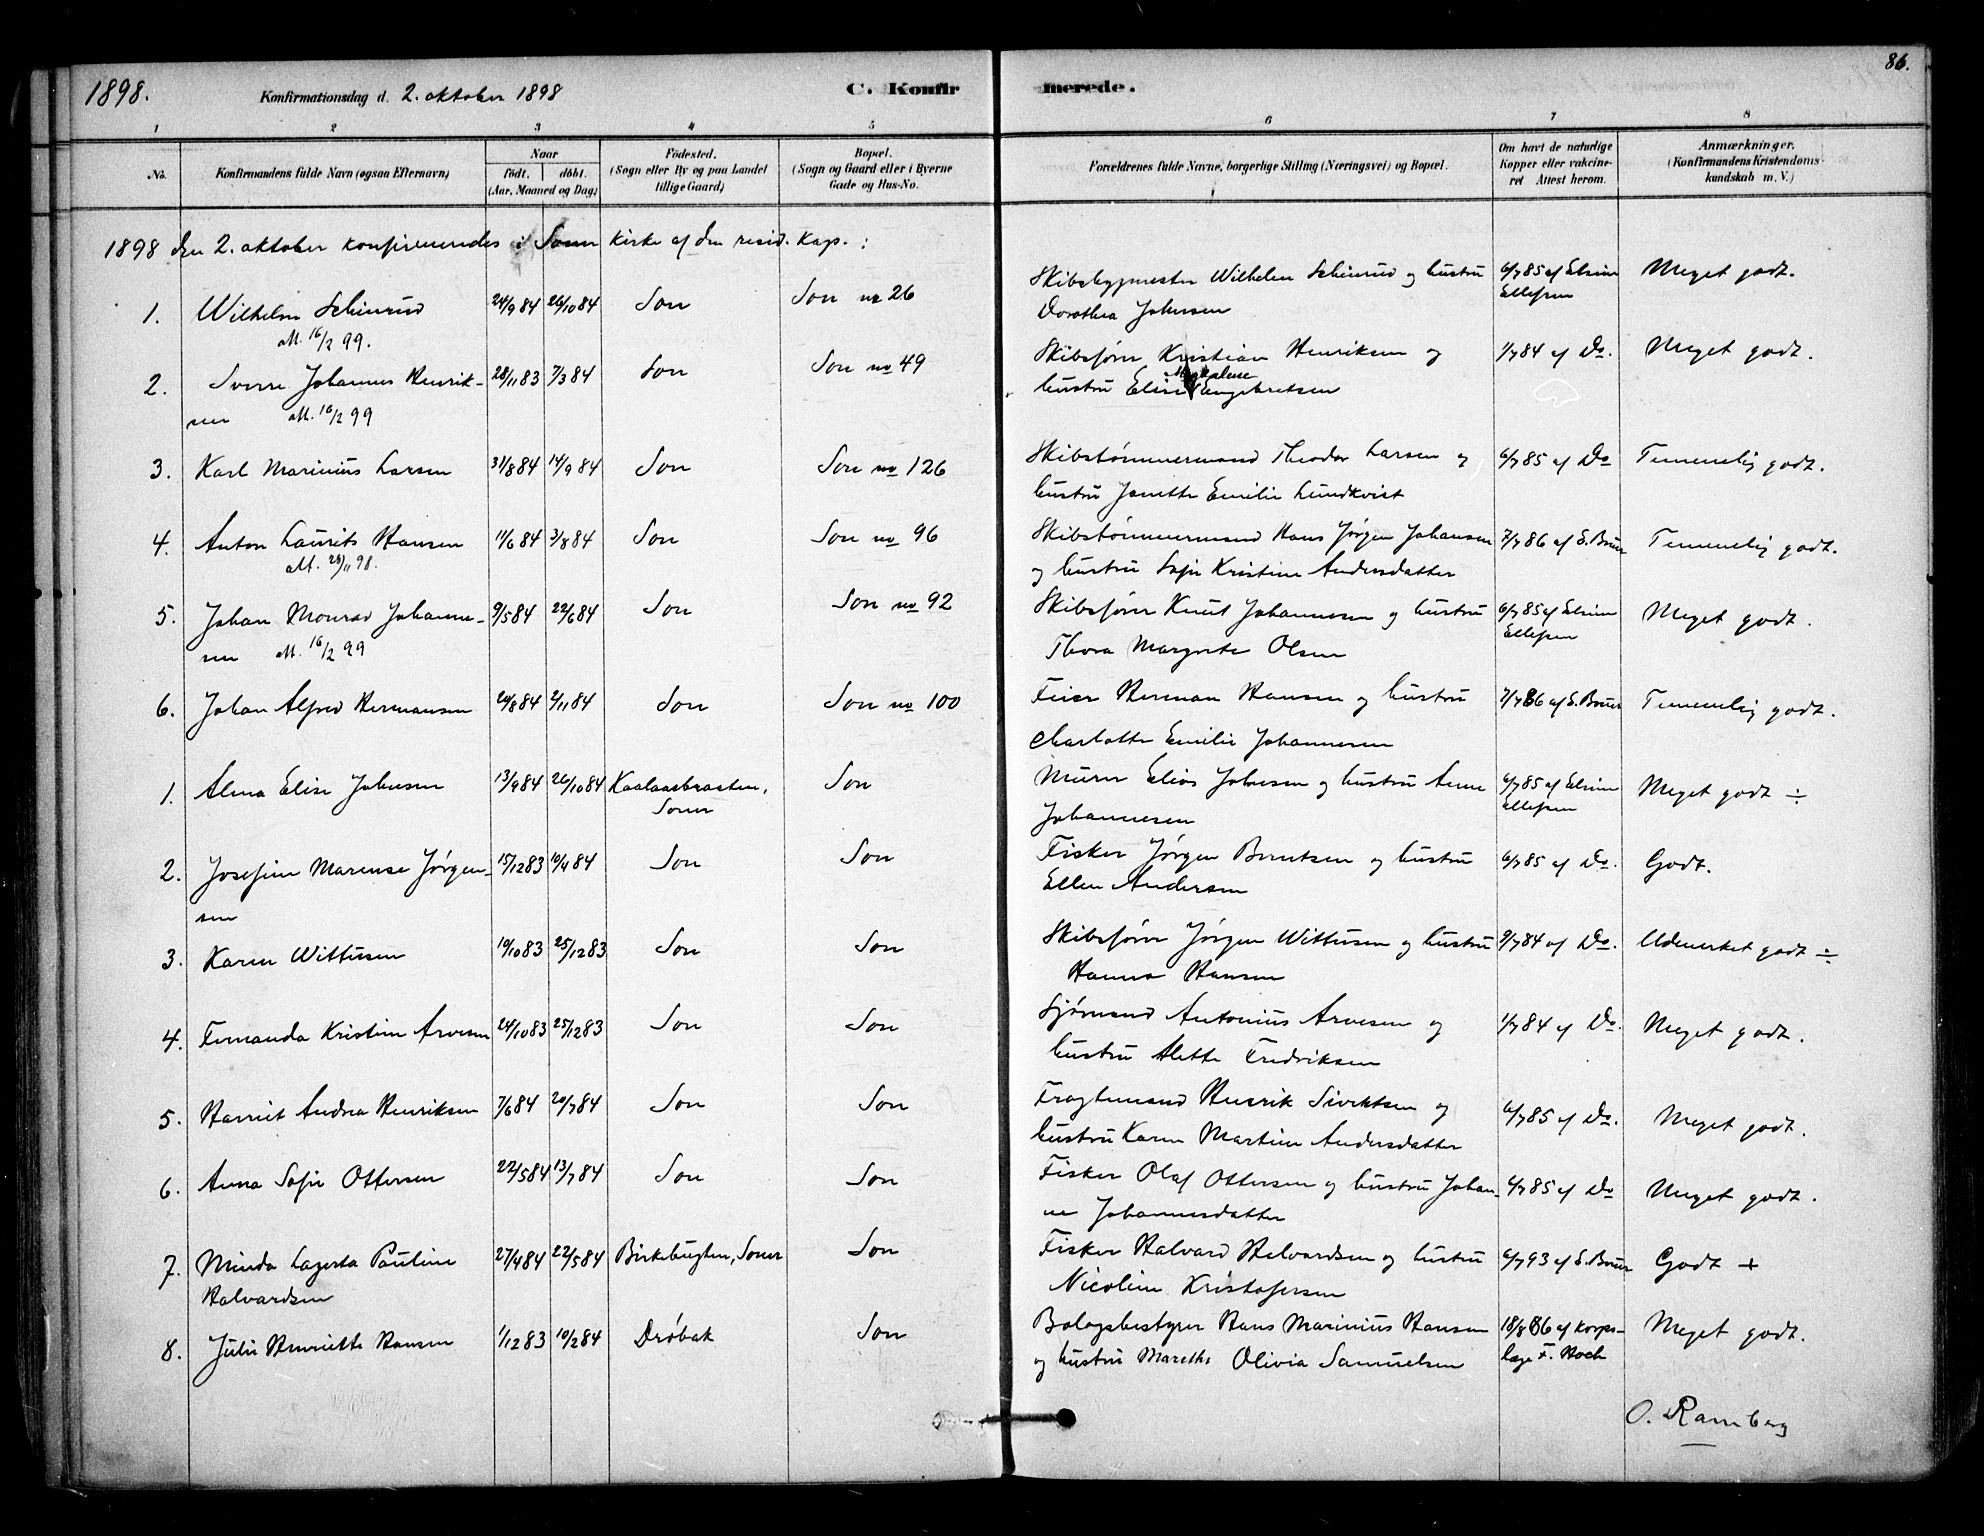 1898.
Konfirmationsdag d. 2. oktober 1898
C. Konfirmerede.
86.
1 2 3 4 5 6 7 8
No.
Konfirmandens fulde Navn (ogsaa Efternavn)
Naar
født. døbt.
(Aar, Maaned og Dag)
Födested.
(Sogn eller By og paa Landet
tillige Gaard)
Bopæl.
(Sogn og Gaard eller i Byerne
Gade og Hus-No.
Forældrenes fulde Navne, borgerlige Stilling (Næringsvei) og Bopæl.
Om havt de naturlige
Kopper eller vakcine-
ret Attest herom.
Anmærkninger.
(Konfirmandens Kristendoms-
kundskab m. V.)
1898 den 2. oktober konfirmeredes i Soner kirke af den resid. kap. :
1. Wilhelm Schinrud 24/9 84 26/10 84 Son Son no 26 Skibsbygmester Wilhelm Schinrud og hustru 6/7 85 af Elrine Meget godt.
att. 16/2 99. Dorothea Johnsen Ellefsen
2. Sverre Johannes Henrik- 28/11 83 7/3 84 Son Son no 49 Skibsfører Kristian Henriksen og 1/7 84 af Do. Meget godt.
sen att. 16/2 99 hustru Elise Magdalene Engebretsen
3. Karl Marinius Larsen 31/8 84 14/9 84 Son Son no 126 Skibstømmermand Theodor Larsen og 6/7 85 af Do Temmelig godt.
hustru Janette Emilie Lundkvist
4. Anton Laurits Hansen 11/6 84 3/8 84 Son Son no 96 Skibstømmermand Hans Jørgen Johansen 7/7 86 af S. Bruer Temmelig godt.
att. 28/11 98. og hustru Sofie Kristine Andersdatter
5. Johan Monrad Johanne- 9/5 84 22/6 84 Son Son no 92 Skibsfører Knut Johannesen og hustru 6/7 85 af Elrine Meget godt.
sen att. 16/2 99 Thora Margrete Olsen Ellefsen
6. Johan Alfred Hermansen 20/8 84 2/11 84 Son Son no 100 Feier Herman Hansen og hustru 7/7 86 af S. Bruer Temmelig godt.
Charlotte Emilie Johannesen
1. Alma Elise Johnsen 13/9 84 26/10 84 Kaalaasbraaten, Son Murer Elias Johnsen og hustru Anne 6/7 85 af Elrine Meget godt ÷
Soner Johannesen Ellefsen
2. Josefine Marense Jørgen- 15/12 83 10/4 84 Son Son Fisker Jørgen Berntsen og hustru 6/7 85 af Do. Godt.
sen Ellen Andersen
3. Karen Wittusen 19/10 83 25/12 83 Son Son Skibsfører Jørgen Wittusen og hustru 9/7 84 af Do. Udmerket godt ÷
Hanna Hansen
4. Fernanda Kristine Arvesen 24/10 83 25/12 83 Son Son Sjømand Antonius Arvesen og 1/7 84 af Do. Meget godt.
hustru Alette Fredriksen
5. Harriet Andrea Henriksen 7/6 84 20/7 84 Son Son Fragtemand Henrik Sivertsen og 6/7 85 af Do. Meget godt.
hustru Karen Martine Andersdatter
6. Anna Sofie Ottersen 22/5 84 13/7 84 Son Son Fisker Olaf Ottersen og hustru Johan- 6/7 85 af Do Meget godt.
ne Johannesdatter
7. Minda Lagerta Pauline 27/4 84 22/5 84 Birkebugten, Soner Son Fisker Halvard Halvardsen og hustru 6/7 93 af S. Bruer Godt +
Halvardsen Nicoline Kristofersen
8. Julie Henriette Hansen 1/12 83 10/2 84 Drøbak Son Bolagsbestyrer Hans Marinius Hansen 18/8 86 af Korps- Meget godt.
og hustru Marethe Olivia Samuelsen læge F. Hoch
O. Ramberg